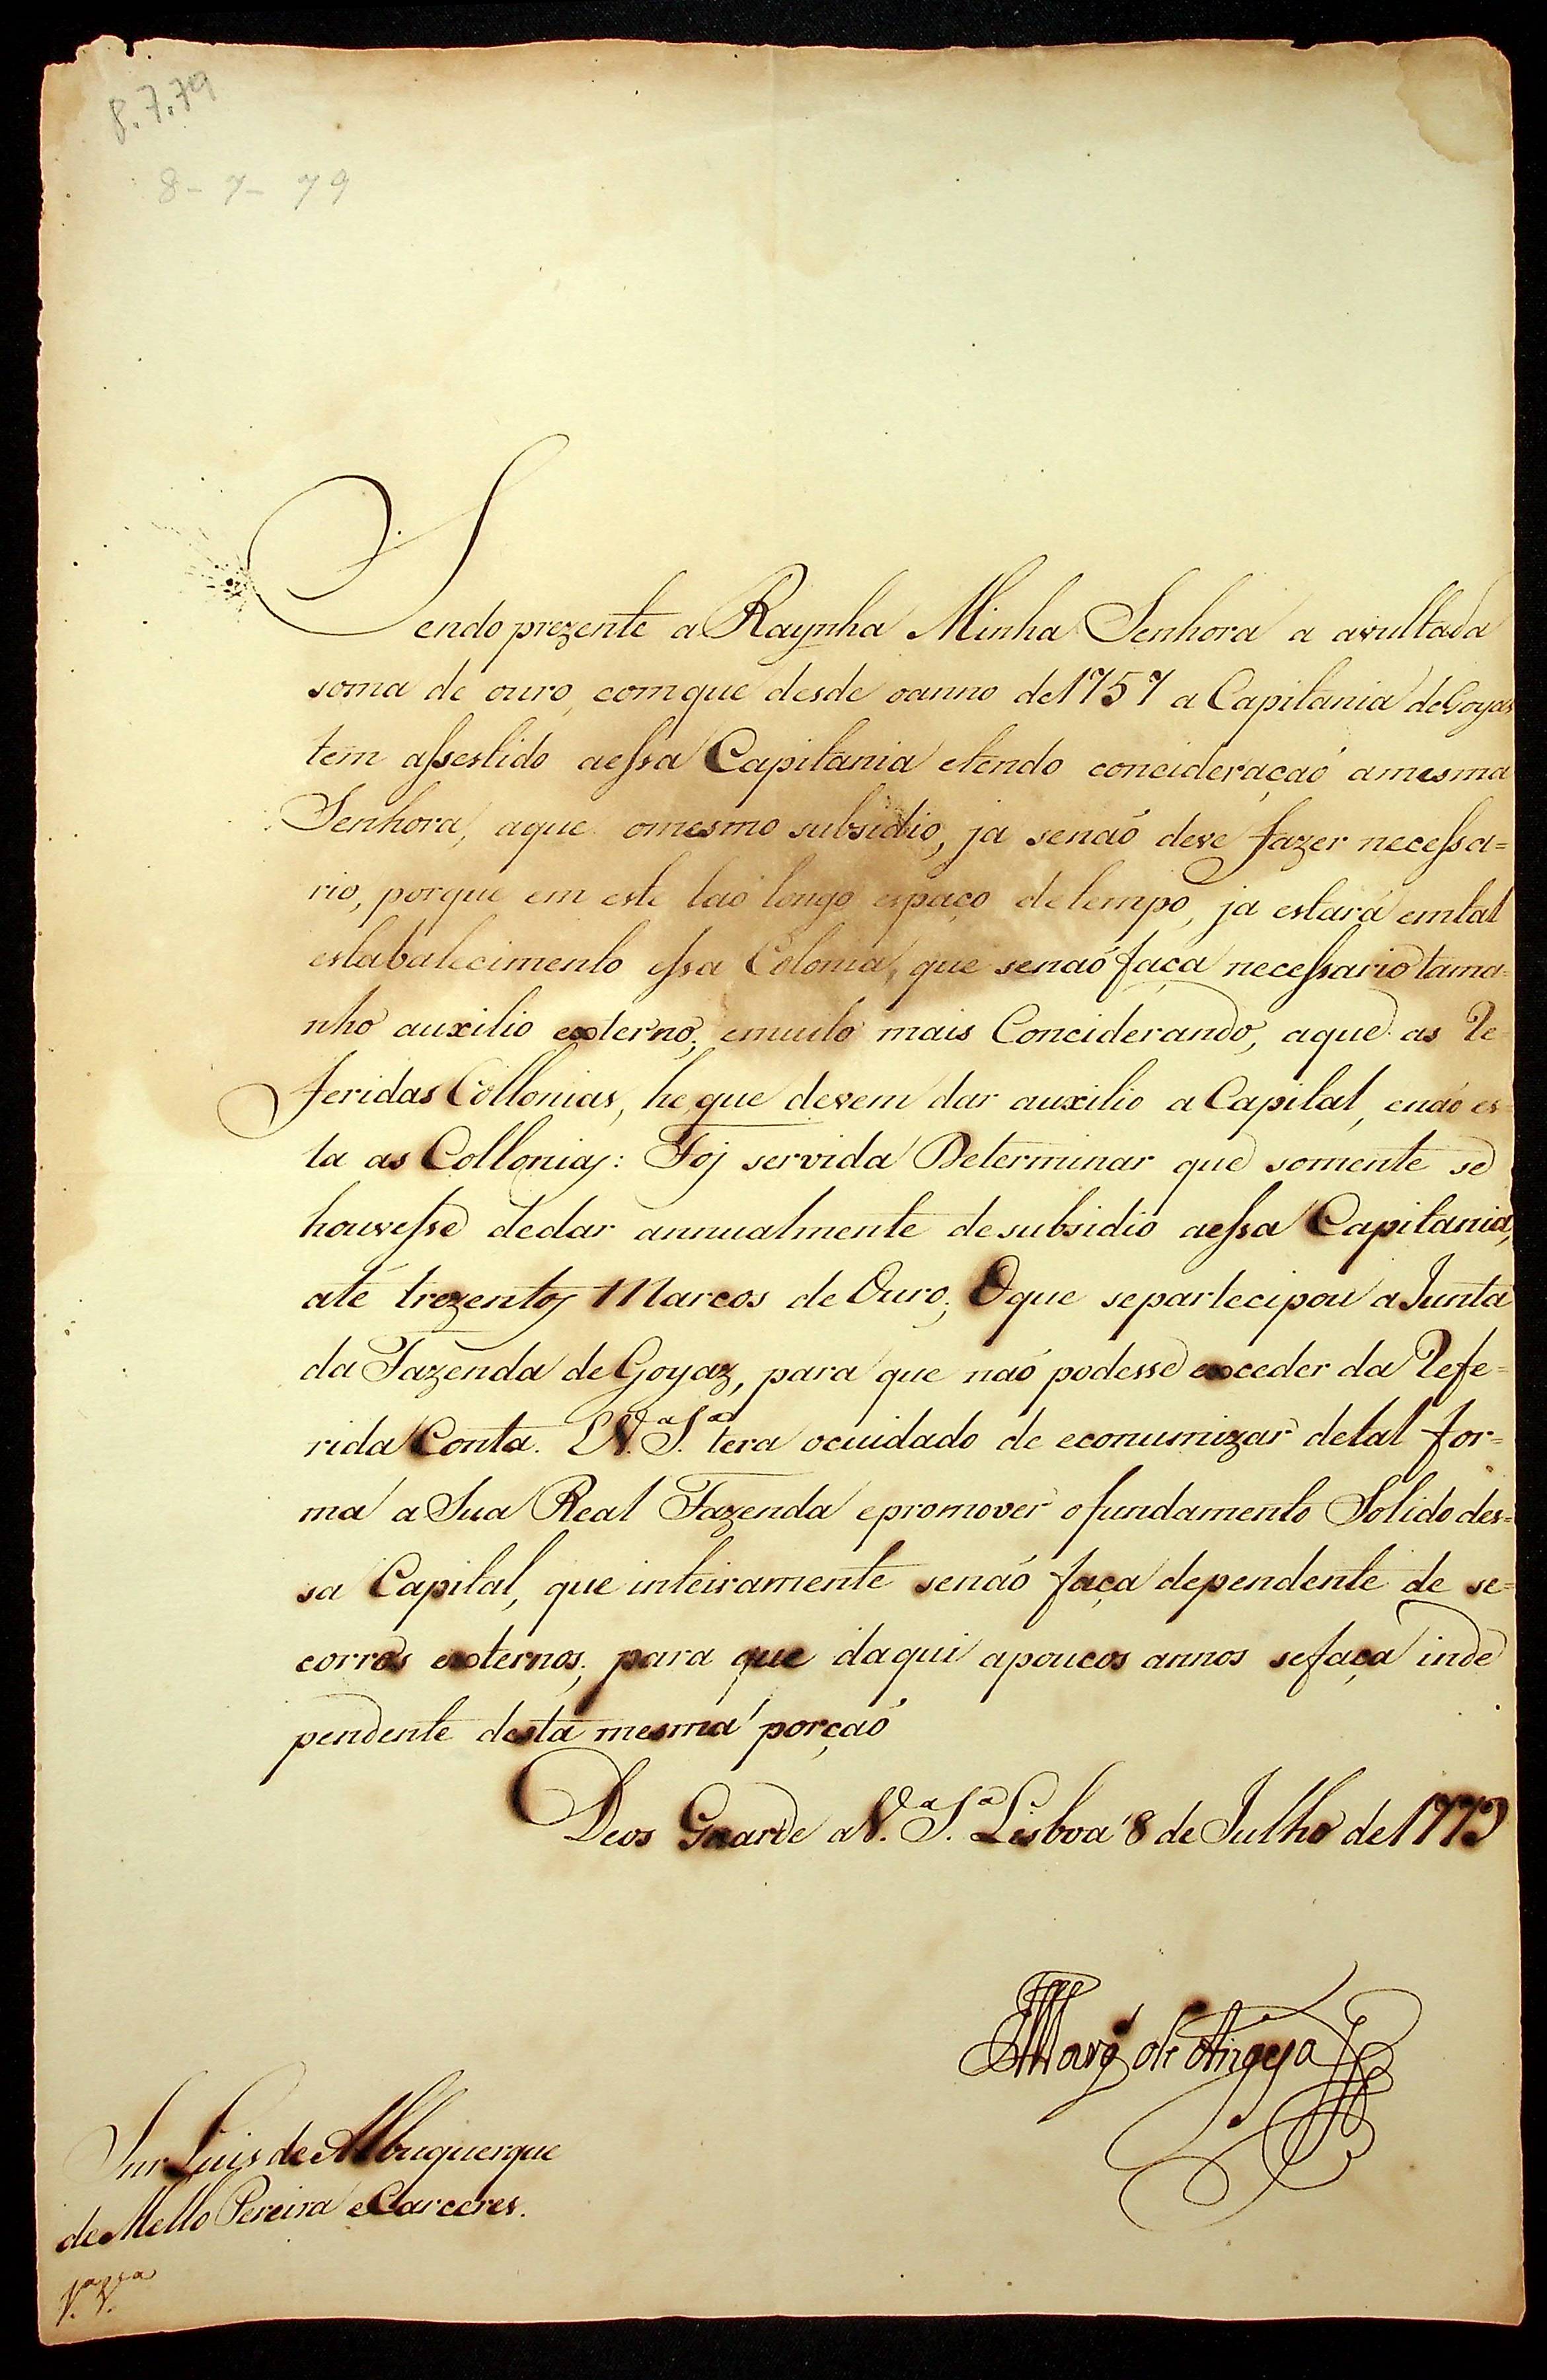 8.7.79
8-7-79
Sendo prezente a Raynha Minha Senhora a avultada
soma de ouro, comque desde oanno de 1757 a Capitania de Goyas
tem assestido aessa Capitania etendo concideraçaó amesma
Senhora, aque omesmo subsidio, ja senaó deve fazer necessa=
rio, porque em este taó longo espaço detempo, ja estará emtal
estabalecimento essa Colonia, que senaó faça necessario tama=
nho auxilio externo; emuito mais Conciderando, aque as Re
feridas Collonias, he que devem dar auxilio a Capital, enaó es=
ta as Collonias: Foj servida Determinar que somente se
houvesse dedar annualmente desubsidio aessa Capitania,
até trezentos Marcos de Ouro; Oque separtecipou a Junta
da Fazenda de Goyaz, para que naó podesse exceder da Refe=
rida Conta. V.ª S.ª tera ocuidado de econumizar detal for=
ma a Sua Real Fazenda epromover ofundamento Solido des=
sa Capital, que inteiramente senaó faça dependente de se=
corros externos; para que daqui apoucos annos sefaça inde
pendente desta mesma porçaó
Deos Guarde aV.ª S.ª Lisboa 8 de Julho de 1779
Marq de Angeja
Snr Luis de Albuquerque
de Mello Pereira eCarceres.